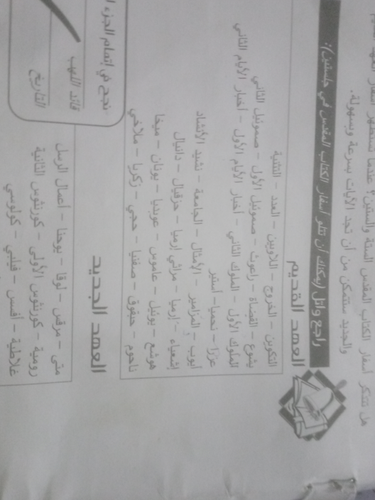 هل تتذكر أسفار الكتاب المقدس الستة والستين؟ عندما تستظهر أسفار العهد
والجديد ستتمكن من أن تجد الآيات بسرعة وبسهولة.
راجع واتل (يمكنك أن تتلو أسفار الكتاب المقدس في جلستين):
العهد القديم
التكوين - الخروج - اللاويين - العدد - التثنية
يشوع - القضاة - راعوث - صموئيل الأول - صموئيل الثاني
الملوك الأول - الملوك الثاني - أخبار الأيام الأول - أخبار الأيام الثاني
عزرا - نحميا - أستير
أيوب - المزامير - الأمثال - الجامعة - نشيد الأنشاد
إشعياء - إرميا - مراثي إرميا - حزقيال - دانيال
هوشع - يوئيل - عاموس - عوبديا - يونان - ميخا
ناحوم - حبقوق - صفنيا - حجي - زكريا - ملاخي
العهد الجديد
متى - مرقس - لوقا - يوحنا - أعمال الرسل
رومية - كورنثوس الأولى - كورنثوس الثانية
غلاطية - أفسس - فيلبي - كولوسي
نجح في إتمام الجزء
قائد اللهب
التاريخ